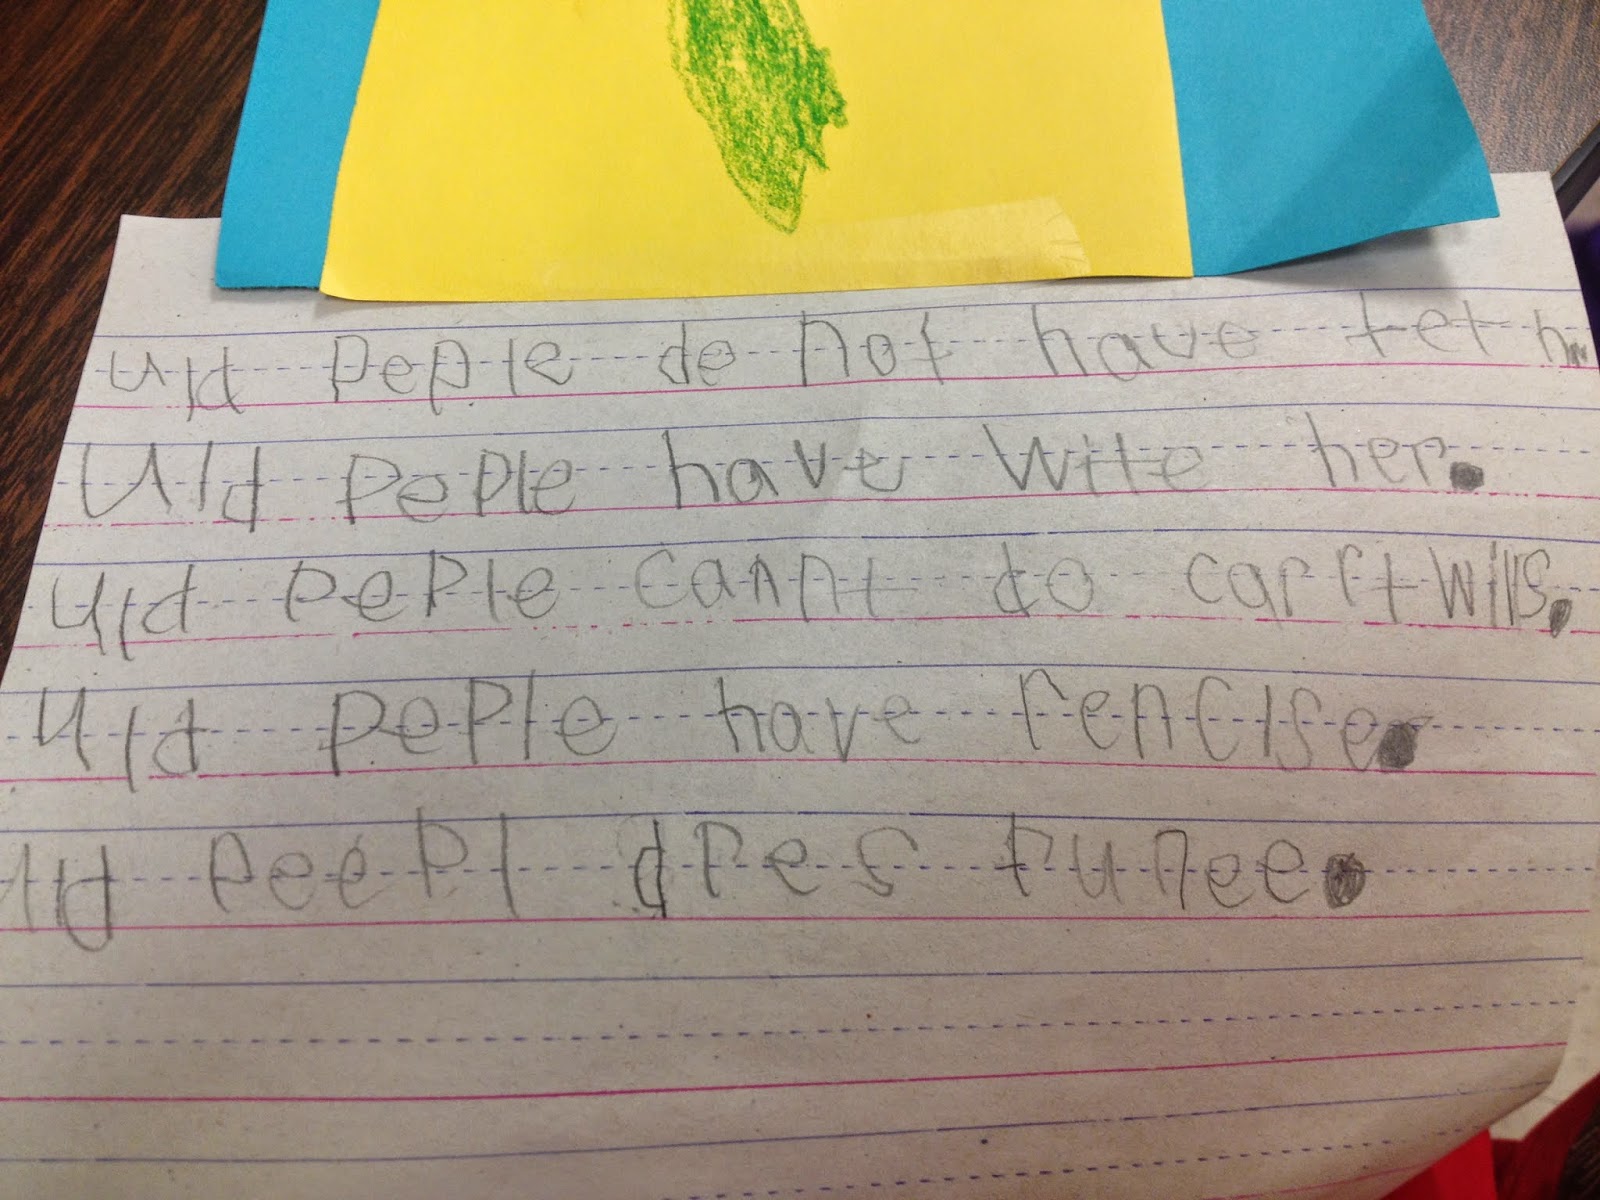 Uld peple de not have teth
Uld Peple have wite her.
Uld pePle cannt do carrtwills.
Uld pePle have renclse.
Uld peepl dres funee.